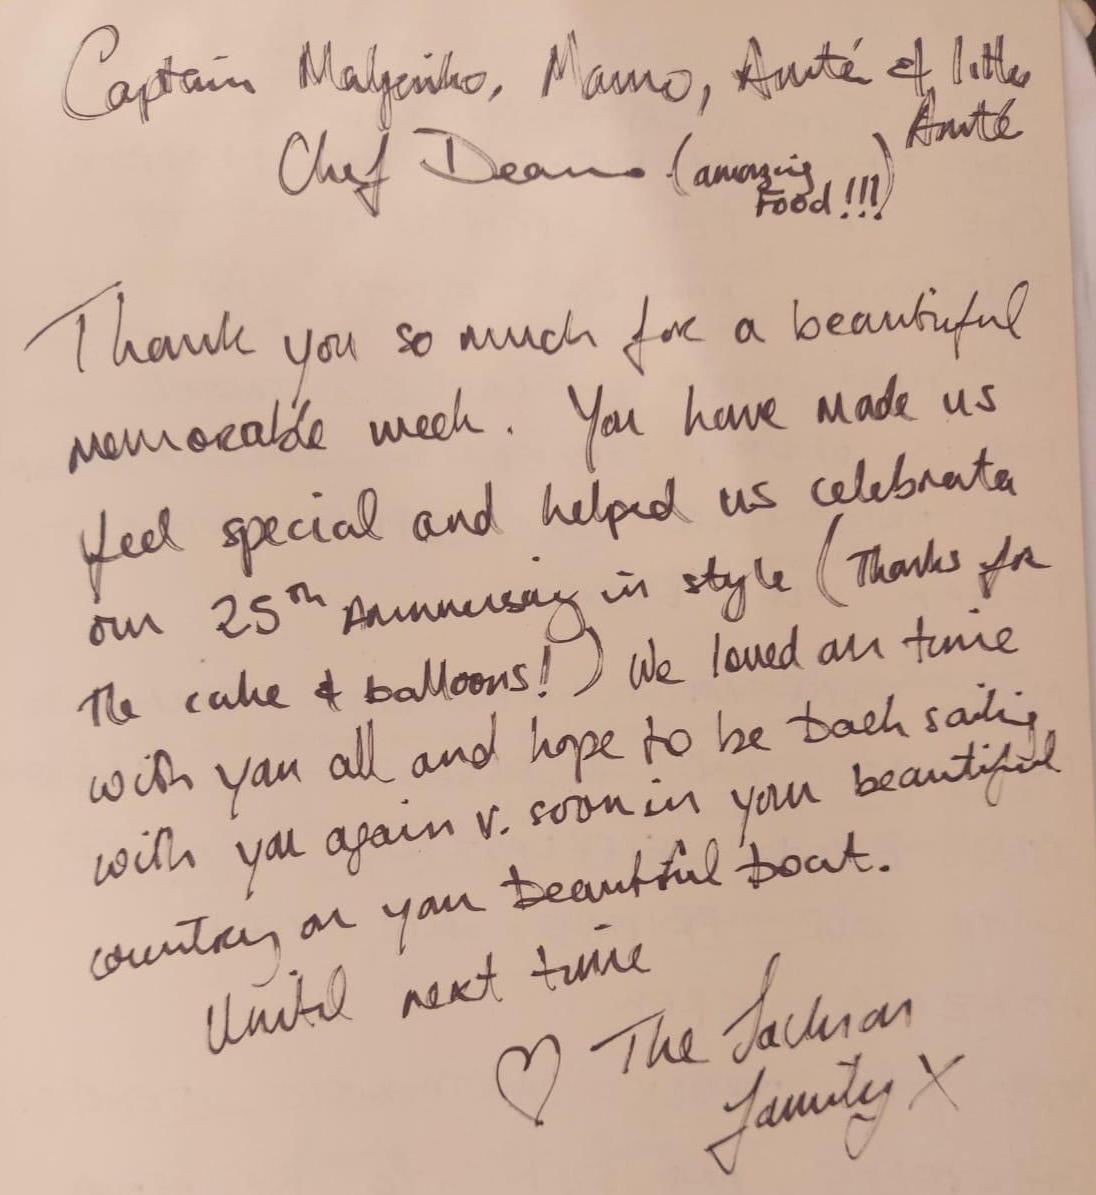 Captain Malgenko, Mamo, Anté & little
Anté
Chef Deano (amazing
Food!!!)
Thank you so much for a beautiful
memorable week. You have made us
feel special and helped us celebrate
our 25th Anniversary in style (Thanks for
the cake & balloons!) We loved our time
with you all and hope to be back sailing
with you again v. soon in your beautiful
country on your beautiful boat.
Until next time
♡ The Jackson
family X